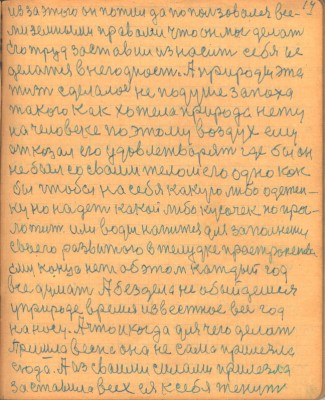 19
из за этого он потом да попользовался все-
ми земными правами что он мог делат
Его труд заставил износит себя и с
делатся в негодност. А природы эта
тип сделался не по душе запоха
такого как хотела природа нету
на человеке поэтому воздух ему
отказал его удовлетворят где бы он
не был со своим телом его одно как
бы чтобы на себя какую либо одеген-
ку но надет какой либо кусочек по прог-
лотит или воды напится для заполнения
своего развитого в желудке пространства
ему конца нет об этом каждый год
все думат А без дела не обойдешся
у природе время известное весь год
на носу. А что и когда для чего делат
Пришла весна она не сама пришла
сюда. А из своими силами пришла
заставила всех ся к себя тянут